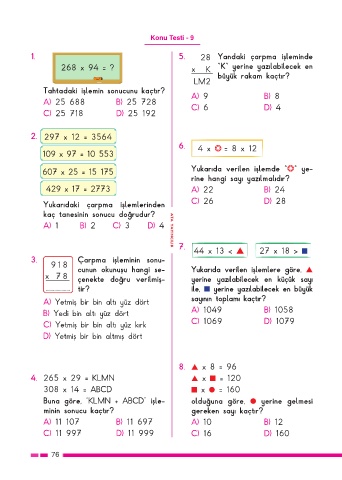 Konu Testi - 9
1.
268 x 94 = ?
Tahtadaki işlemin sonucunu kaçtır?
A) 25 688 B) 25 728
C) 25 718 D) 25 192
2. 297 x 12 = 3564
109 x 97 = 10 553
607 x 25 = 15 175
429 x 17 = 2773
Yukarıdaki çarpma işlemlerinden
kaç tanesinin sonucu doğrudur?
A) 1 B) 2 C) 3 D) 4
3.
918
x 78
Çarpma işleminin sonu-
cunun okunuşu hangi se-
çenekte doğru verilmiş-
tir?
A) Yetmiş bir bin altı yüz dört
B) Yedi bin altı yüz dört
C) Yetmiş bir bin altı yüz kırk
D) Yetmiş bir bin altmış dört
4. 265 x 29 = KLMN
308 x 14 = ABCD
Buna göre, "KLMN + ABCD" işle-
minin sonucu kaçtır?
A) 11 107 B) 11 697
C) 11 997 D) 11 999
5.
28
x K
LM2
Yandaki çarpma işleminde
"K" yerine yazılabilecek en
büyük rakam kaçtır?
A) 9 B) 8
C) 6 D) 4
6.
4 x ✪ = 8 x 12
Yukarıda verilen işlemde "✪" ye-
rine hangi sayı yazılmalıdır?
A) 22 B) 24
C) 26 D) 28
7.
44 x 13 < ▲ 27 x 18 > ■
Yukarıda verilen işlemlere göre, ▲
yerine yazılabilecek en küçük sayı
ile, ■ yerine yazılabilecek en büyük
sayının toplamı kaçtır?
A) 1049 B) 1058
C) 1069 D) 1079
8. ▲ x 8 = 96
▲ x ■ = 120
■ x ● = 160
olduğuna göre, ● yerine gelmesi
gereken sayı kaçtır?
A) 10 B) 12
C) 16 D) 160
76